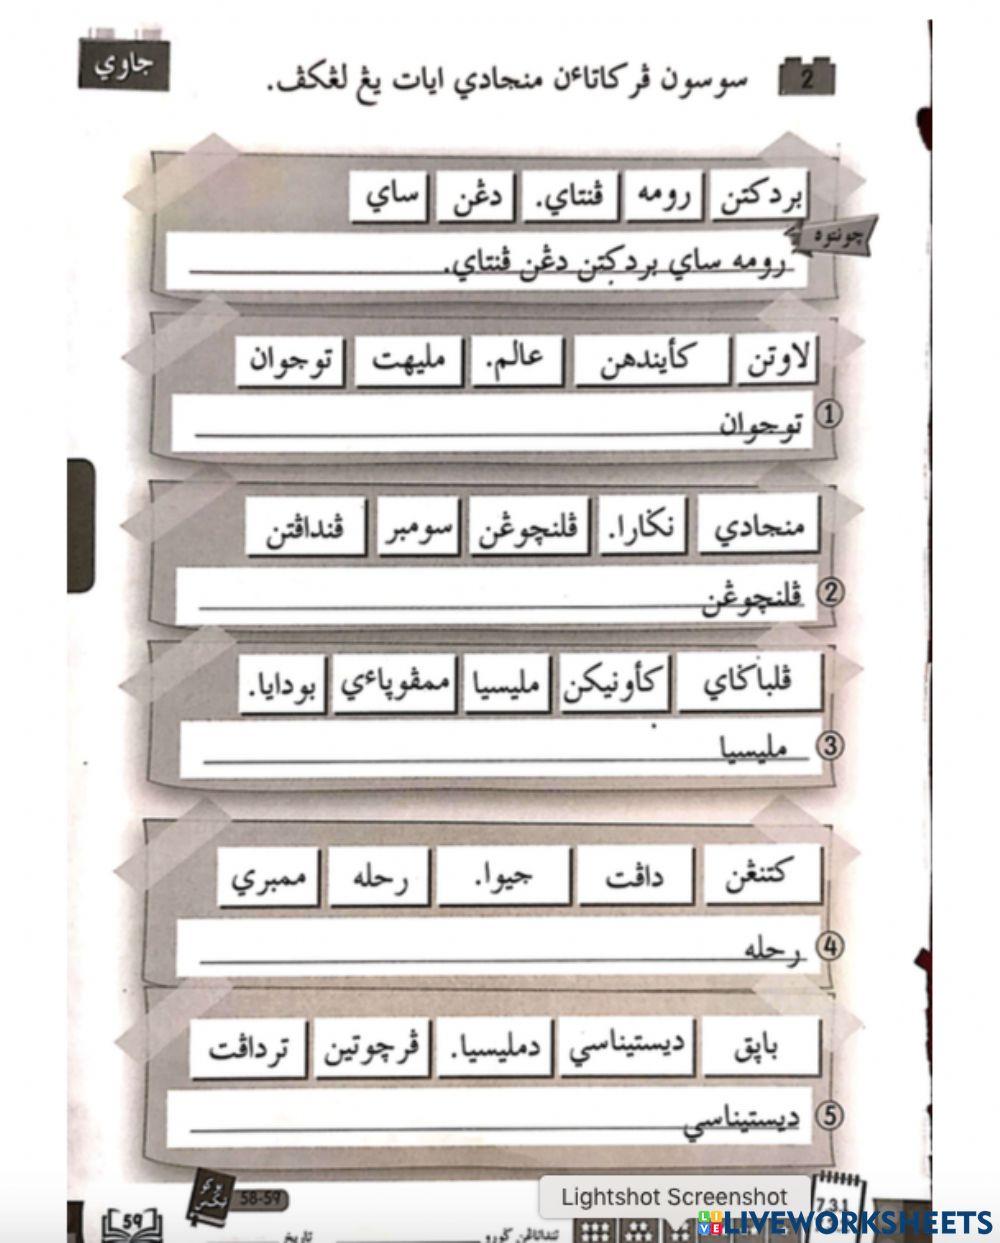 جاوي
2 سوسون ڤركاتاءن منجادي ايات يڠ لڠكڤ.
بردكتن رومه ڤنتاي. دڠن ساي
چونتوه
رومه ساي بردكتن دڠن ڤنتاي.
لاوتن كأيندهن عالم. مليهت توجوان
1 توجوان
منجادي نݢارا. ڤلنچوڠن سومبر ڤنداڤتن
2 ڤلنچوڠن
ڤلباݢاي كأونيكن مليسيا ممڤوڽاءي بودايا.
3 مليسيا
كتنڠن داڤت جيوا. رحله ممبري
4 رحله
باڽق ديستيناسي دمليسيا. ڤرچوتين ترداڤت
5 ديستيناسي
بوكو تيكس 58-59
59
تنداتاڠن ݢورو
تاريخ
731
Lightshot Screenshot
LIVEWORKSHEETS